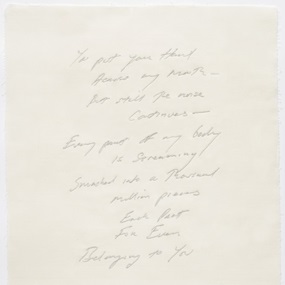 You put your Hand
Across my mouth —
But still the noise
Continues —
Every part of my body
is Screaming
Smashed into a Thousand
million pieces
Each Part
For Ever
Belonging to You